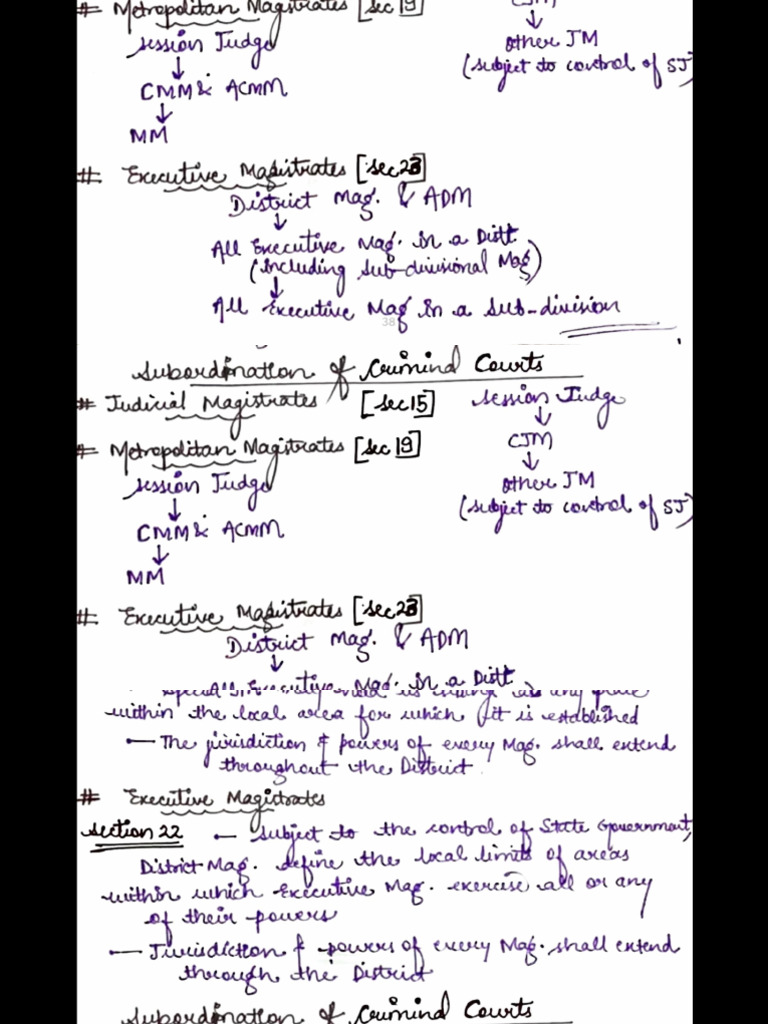 # Metropolitan Magistrates [sec 19]
Session Judge
CMM & ACMM
MM
other JM
(subject to control of SJ)
# Executive Magistrates [sec 23]
District Mag. & ADM
All Executive Mag. in a Distt
(including sub-divisional Mag)
All Executive Mag in a sub-division
38
Subordination of Criminal Courts
# Judicial Magistrates [sec 15]
Session Judge
CJM
other JM
(subject to control of SJ)
# Metropolitan Magistrates [sec 19]
Session Judge
CMM & ACMM
MM
# Executive Magistrates [sec 23]
District Mag. & ADM
All Executive Mag. in a Distt
within the local area for which it is established
— The jurisdiction & powers of every Mag. shall extend
throughout the District.
# Executive Magistrates
Section 22 — Subject to the control of State Government,
District Mag. define the local limits of areas
within which Executive Mag. exercise all or any
of their powers
— Jurisdiction & powers of every Mag. shall extend
through the District
Subordination of Criminal Courts